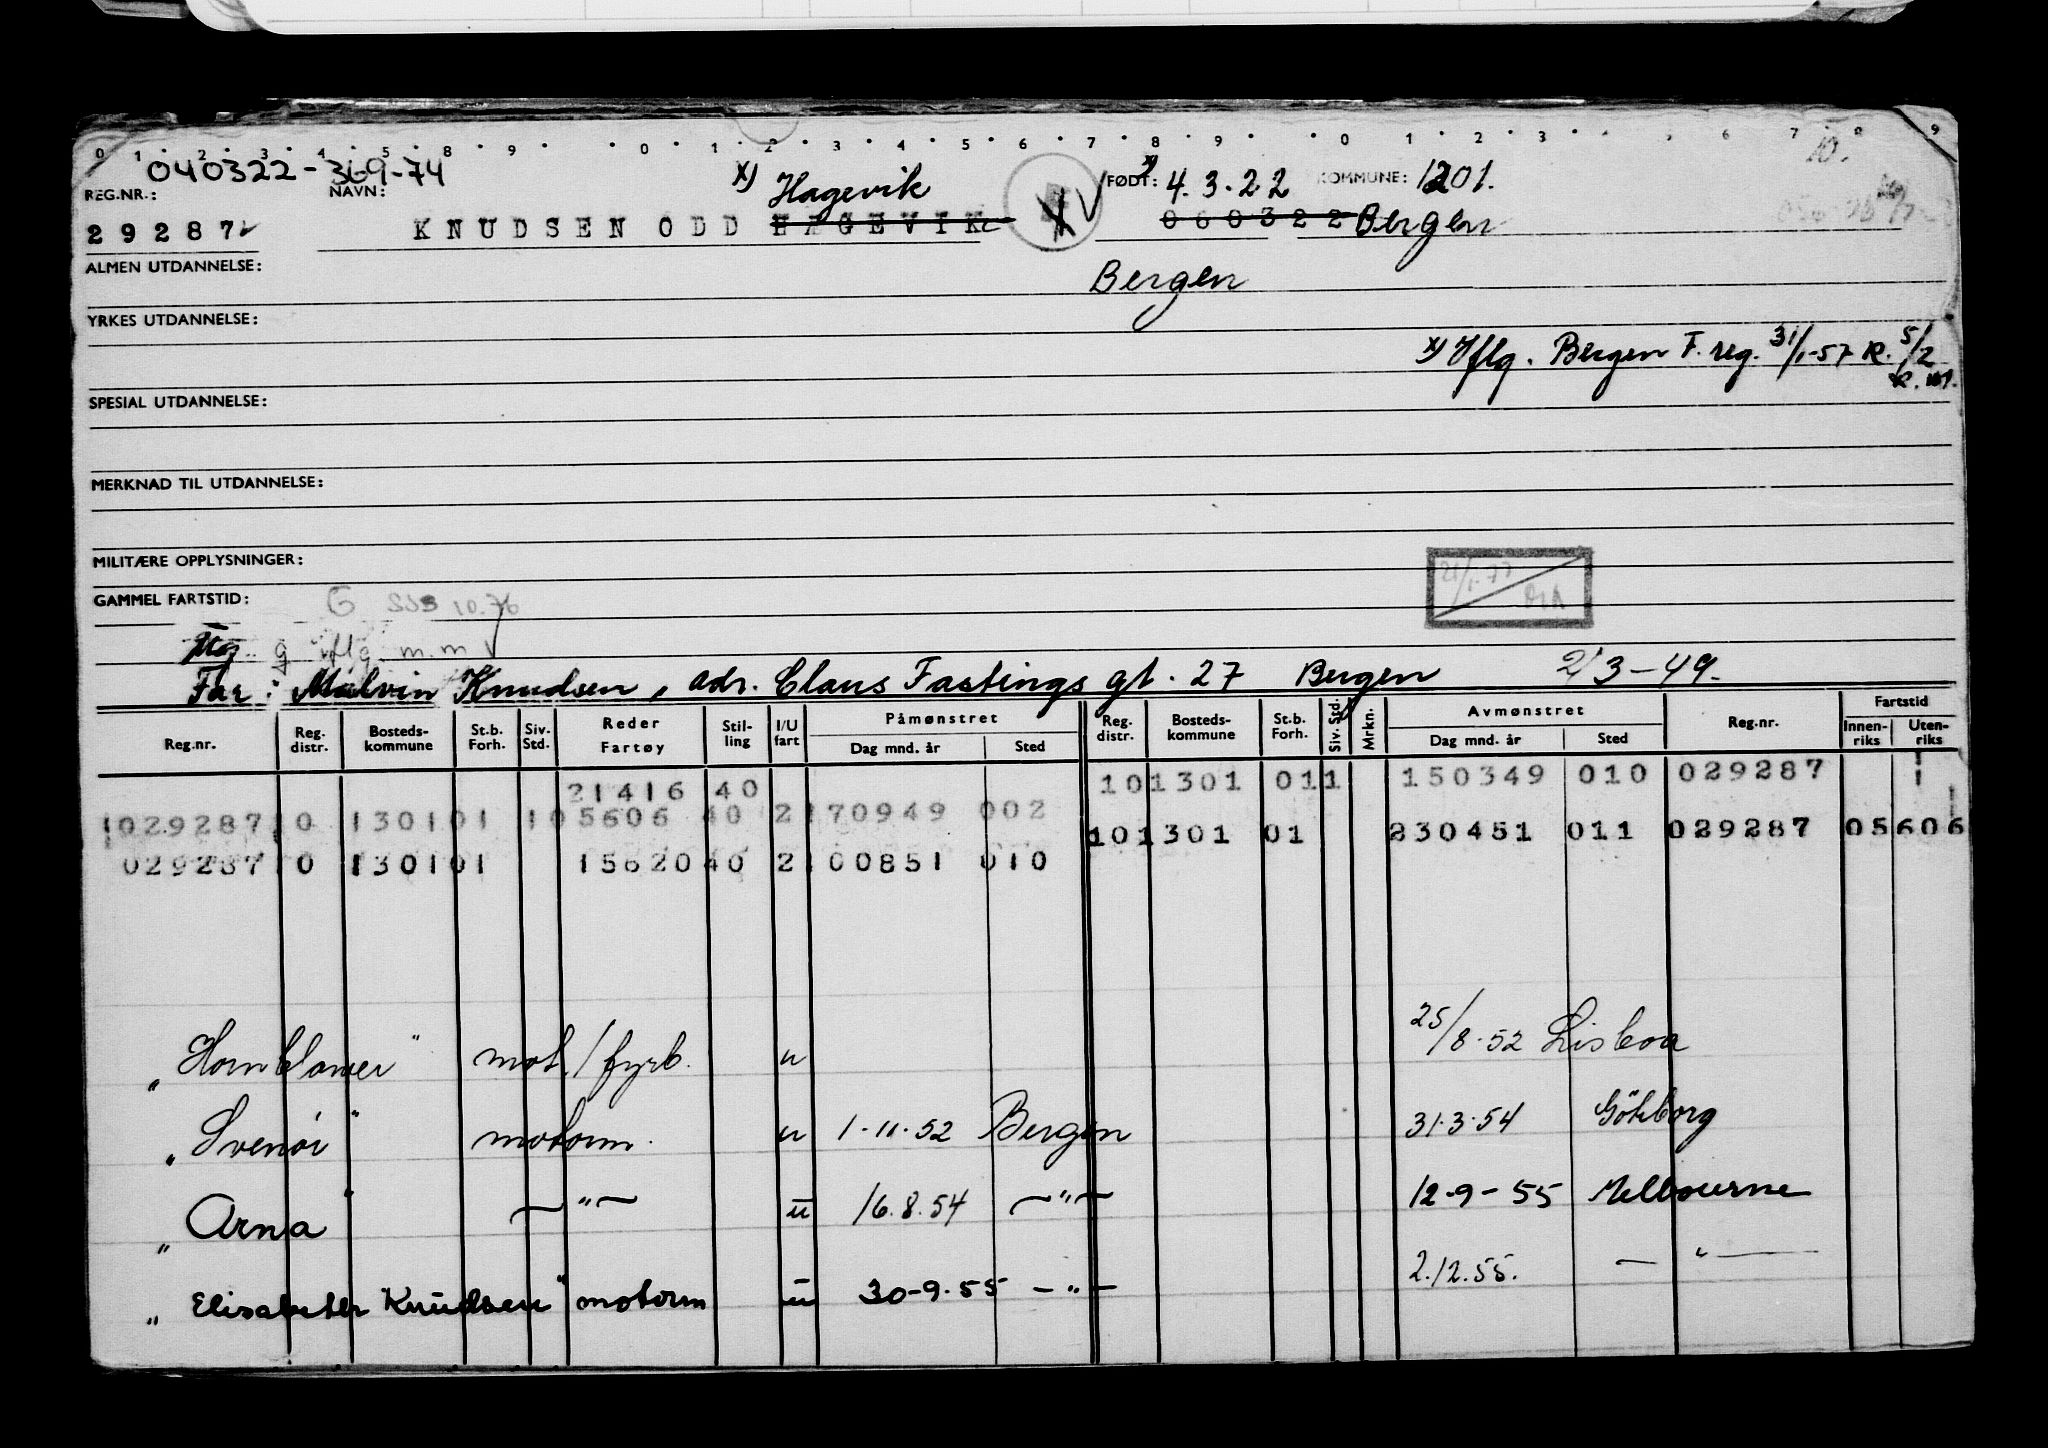 0 1 2 3 4 5 8 9 0 1 2 3 4 5 6 7 8 9 0 1 2 3 6 7 8 9
040322-369-74 x) Hagevik x) 4.3.22 1201. 10.
REG.NR.: NAVN: FØDT: KOMMUNE:
29287 KNUDSEN ODD HAGEVIK 060322 Bergen
ALMEN UTDANNELSE: Bergen
YRKES UTDANNELSE:
x) Iflg. Bergen F.reg. 31/1-57 R. 5/2
SPESIAL UTDANNELSE:
MERKNAD TIL UTDANNELSE:
MILITÆRE OPPLYSNINGER:
21/1-77
GAMMEL FARTSTID: G SSB 10.76
m.m
Far: Malvin Knudsen, adr. Claus Fastings gt. 27 Bergen 2/3-49.
Reg.nr. Reg. distr. Bosteds-kommune St.b. Forh. Siv. Std. Reder Fartøy Stil-ling I/U fart Påmønstret Dag mnd. år Sted Reg. distr. Bosteds-kommune St.b. Forh. Siv. Std. Mrkn. Avmønstret Dag mnd. år Sted Reg.nr. Fartstid Innen-riks Uten-riks
21416 40 101301 011 150349 010 029287
029287 0 130101 105606 40 2170949 002 101301 01 230451 011 029287 05606
029287 0 130101 15620 40 2100851 010
"Hornblower" mot./fyrb. u 25/8.52 Lisboa
"Svenör" motorm. u 1-11-52 Bergen 31.3.54 Göteborg
"Arna" —"— u 16.8.54 —"— 12-9-55 Melbourne
"Elisabeth Knudsen" motorm u 30-9-55 —"— 2.12.55. —"—